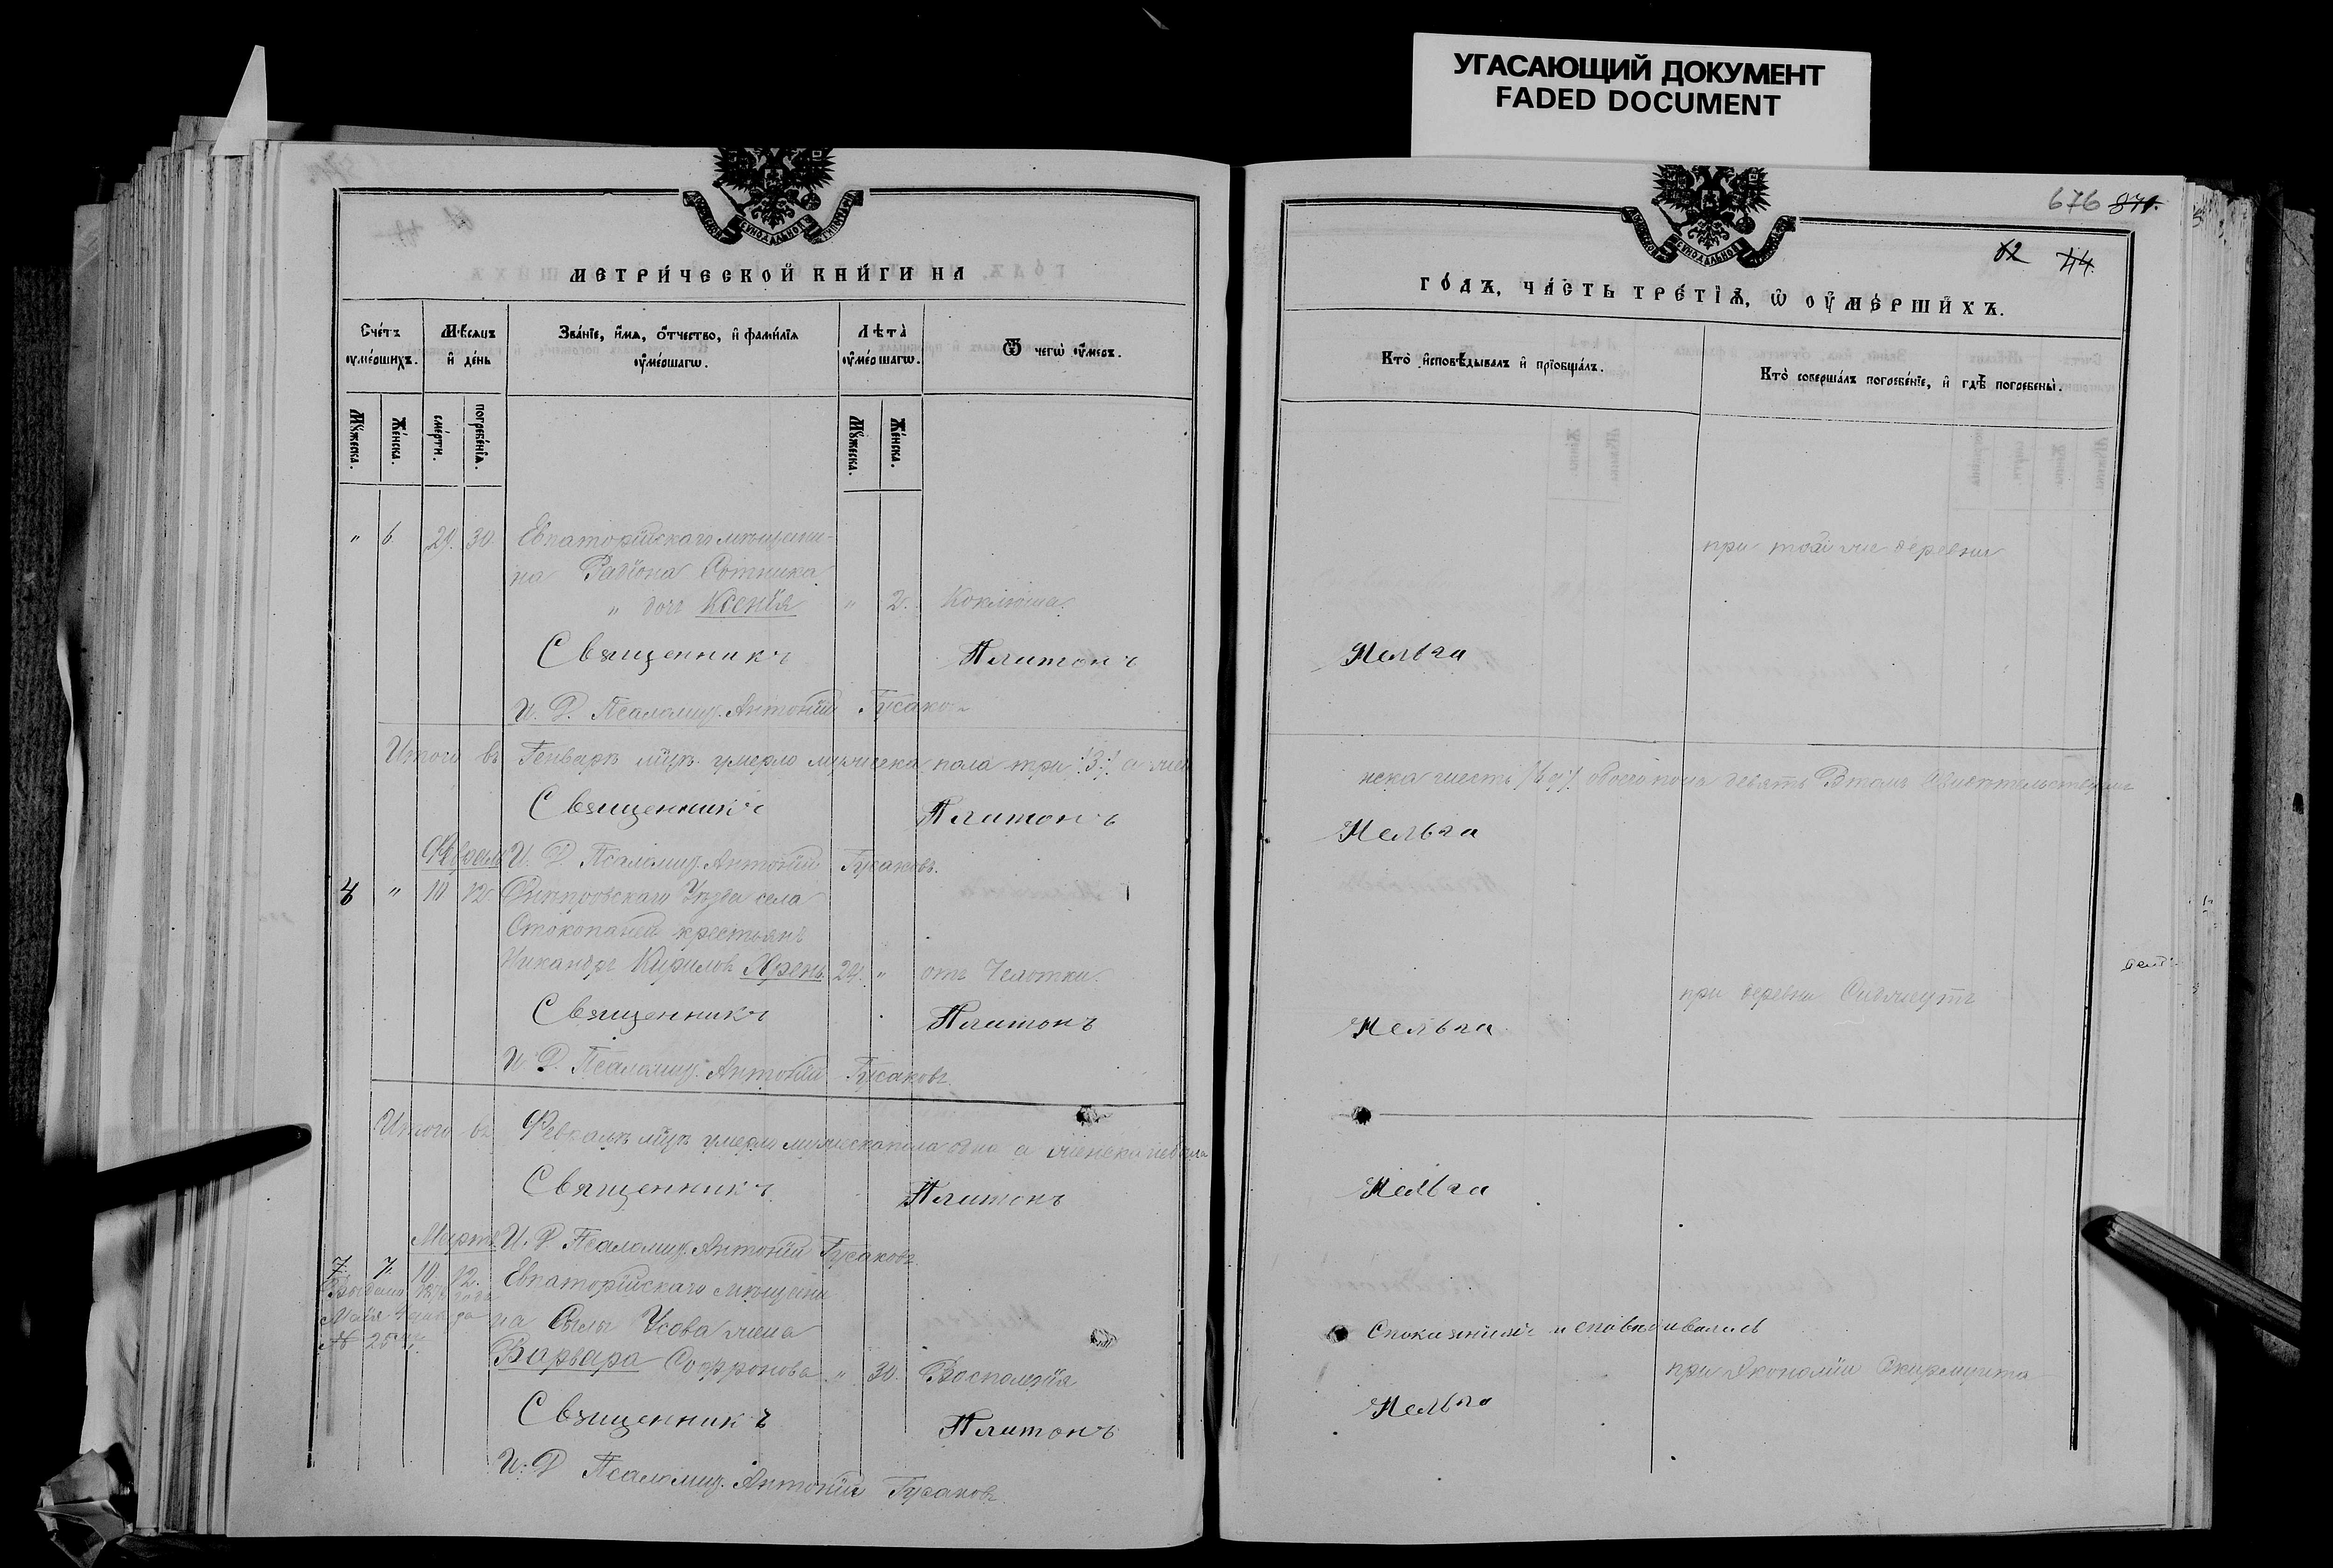 УГАСАЮЩИЙ ДОКУМЕНТ
FADED DOCUMENT
МЕТРИ́ЧЕСКОЙ КНИ́ГИ НА
Сче́тъ оумéршихъ.
Мѣсяцъ и де́нь
Зва́нїе, и́мя, о́тчество, и фами́лїя оумéршагѡ.
Лѣта̀ оумéршагѡ.
Ѿ чегѡ̀ оу́меръ.
Му́жеска.
Же́нска.
смéрти.
погребéнїя.
Му́жеска.
Же́нска.
" 6. 29. 30. Евпаторійскаго мѣщани-
на Радіона Сотника
" дочь Ксенія " 2. Коклюша.
Священникъ Платонъ
И. Д. Псаломщ. Антоній Гусаковъ
Итого въ Генварѣ мцѣ умерло мужеска пола три /3/ а жен
Священникъ Платонъ
Февраль И. Д. Псаломщ. Антоній Гусаковъ.
4 " 10 12 Днѣпровскаго Уѣзда села
Стокопаней крестьянъ
Никандръ Кирилов 29. " отъ Чахотки.
Священникъ Платонъ
И. Д. Псаломщ. Антоній Гусаковъ.
Итого въ Февралѣ мцѣ умерло мужеска пола одна а женска небыло
Священникъ Платонъ
Мартъ И. Д. Псаломщ. Антоній Гусаковъ
7. 10 12. Евпаторійскаго мѣщани
Выдано
Мая 4 дня за на Сылы Усова жена
№ 25
Варвара Софронова " 30. Воспаленія
Священникъ Платонъ
И. Д. Псаломщ. Антоній Гусаковъ.
676 871.
62 44
ГО́ДЪ, ЧА́СТЬ ТРЕ́ТІѦ, Ѡ ОУМЕ́РШИХЪ.
Кто̀ исповѣ́дывалъ и прїобща́лъ.
Кто̀ соверша́лъ погребéнїе, и гдѣ̀ погребены̀.
при той же деревни
Мельга
нска шесть обоего пола девять Втомъ Свидѣтельствуемъ
Мельга
при деревни
Мельга
Мельга
Спокаяніемъ исповѣдывалась
при Экономіи Скирмунта
Мельга